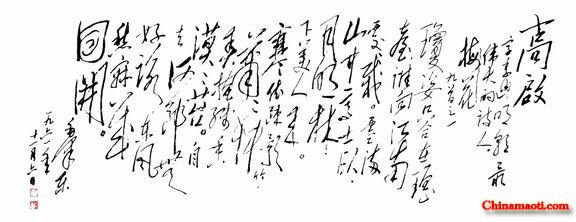 高啟
字季迪明朝最
伟大的诗人
梅花 九首之一
瓊姿只合在瑶
臺誰向江南
處々栽。雪满
山中高士卧，
月明林
下美人来。
寒依疎影
蕭々竹，
春掩残香
漠々苔。自
去何郎无
好詠，东风
愁寂幾
回開。
毛泽东
一九六一年
十一月六日
Chinamaoti.com